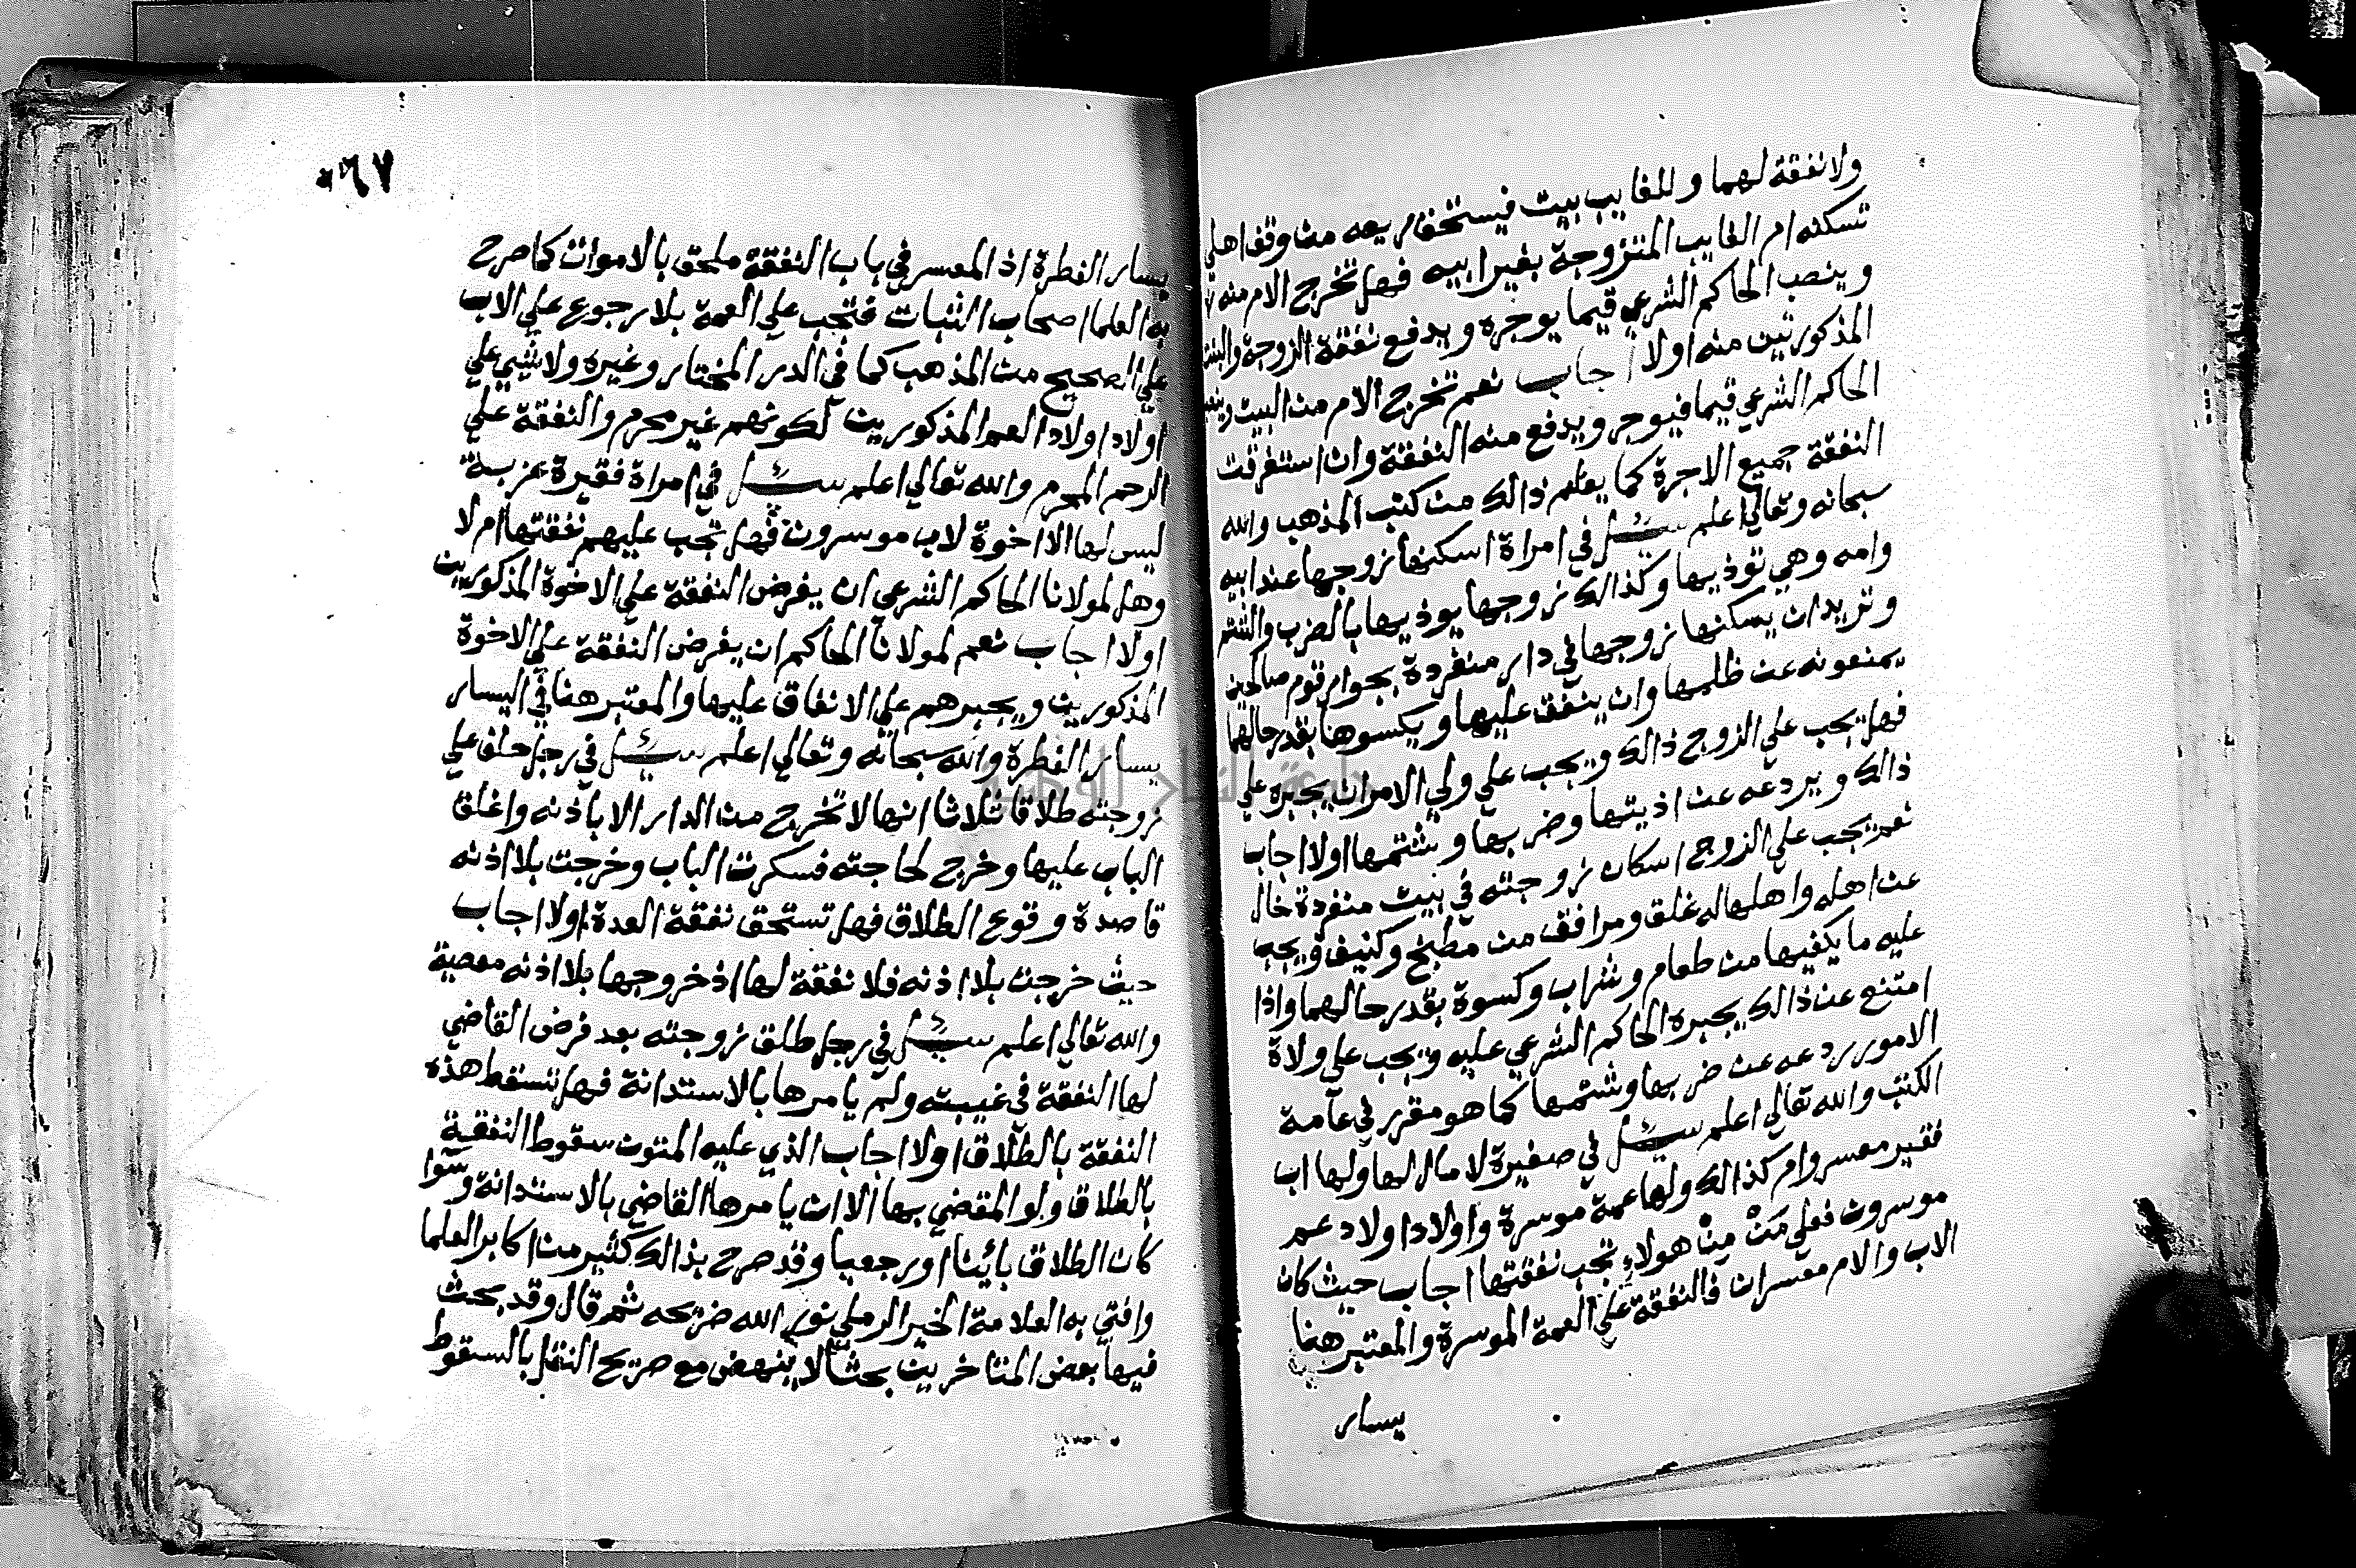 ولا نفقة لهما وللغايب بيت فيستحق ريعه من وقف اهلي
تسكنه ام الغايب المتزوجة بغير ابيه فهل تخرج الام منه
وينصب الحاكم الشرعي قيما يوجره ويدفع نفقة الزوجة والبنت
المذكورتين منه اولا اجاب نعم تخرج الام من البيت وينصب
الحاكم الشرعي قيما فيوجر ويدفع منه النفقة وان استغرقت
النفقة جميع الاجرة كما يعلم ذالك من كتب المذهب والله
سبحانه وتعالي اعلم سئل في امراة اسكنها زوجها عند ابيه
وامه وهي تؤذيها وكذالك زوجها يوذيها بالضرب والشتم
وتريد ان يسكنها زوجها في دار منفردة بجوار قوم صالحين
يمنعونه عن ظلمها وان ينفق عليها ويكسوها بقدر حالهما
فهل يجب علي الزوج ذالك ويجب علي ولي الامر ان يجبره علي
ذالك ويردعه عن اذيتها وضربها وشتمها اولا اجاب
نعم يجب علي الزوج اسكان زوجته في بيت منفردة خال
عن اهله واهلها له غلق ومرافق من مطبخ وكنيف ويجب
عليه ما يكفيها من طعام وشراب وكسوة بقدر حالهما واذا
امتنع عن ذالك يجبره الحاكم الشرعي عليه ويجب علي ولاة
الامور ردعه عن ضربها وشتمها كما هو مقرر في عامة
الكتب والله تعالي اعلم سئل في صغيرة لا مال لها ولها اب
فقير معسر وام كذالك ولها عمة موسرة واولاد اولاد عم
موسرون فعلي مَنْ مِنْ هولاءِ تجب نفقتها اجاب حيث كان
الاب والام معسران فالنفقة علي العمة الموسرة والمعتبر هنا
يسار
٦٧
يسار الفطرة اذ المعسر في باب النفقة ملحق بالاموات كما صرح
به العلما اصحاب الثبات فتجب علي العمة بلا رجوع علي الاب
علي الصحيح من المذهب كما في الدر المختار وغيره ولا شيي علي
اولاد اولاد العم المذكورين لكونهم غير محرم والنفقة علي
الرحم المحرم والله تعالي اعلم سئل في امراة فقيرة عزبة
ليس لها الا اخوة لاب موسرون فهل تجب عليهم نفقتها ام لا
وهل لمولانا الحاكم الشرعي ان يفرض النفقة علي الاخوة المذكورين
اولا اجاب نعم لمولانا الحاكم ان يفرض النفقة علي الاخوة
المذكورين ويجبرهم علي الانفاق عليها والمعتبر هنا في اليسار
يسار الفطرة والله سبحانه وتعالي اعلم سئل في رجل حلف علي
زوجته طلاقا ثلاثا انها لا تخرج من الدار الا باذنه واغلق
الباب عليها وخرج لحاجته فسكرت الباب وخرجت بلا اذنه
قاصدة وقوع الطلاق فهل تستحق نفقة العدة اولا اجاب
حيث خرجت بلا اذنه فلا نفقة لها اذ خروجها بلا اذنه معصية
والله تعالي اعلم سئل في رجل طلق زوجته بعد فرض القاضي
لها النفقة في غيبته ولم يامرها بالاستدانة فهل تسقط هذه
النفقة بالطلاق اولا اجاب الذي عليه المتون سقوط النفقة
بالطلاق ولو المقضي بها الا ان يامرها القاضي بالاستدانة وسوا
كان الطلاق بائنا او رجعيا وقد صرح بذالك كثير من اكابر العلما
وافتي به العلامة الخير الرملي نور الله ضريحه ثم قال وقد بحث
فيها بعض المتاخرين بحثا لا ينهض مع صريح النقل بالسقوط